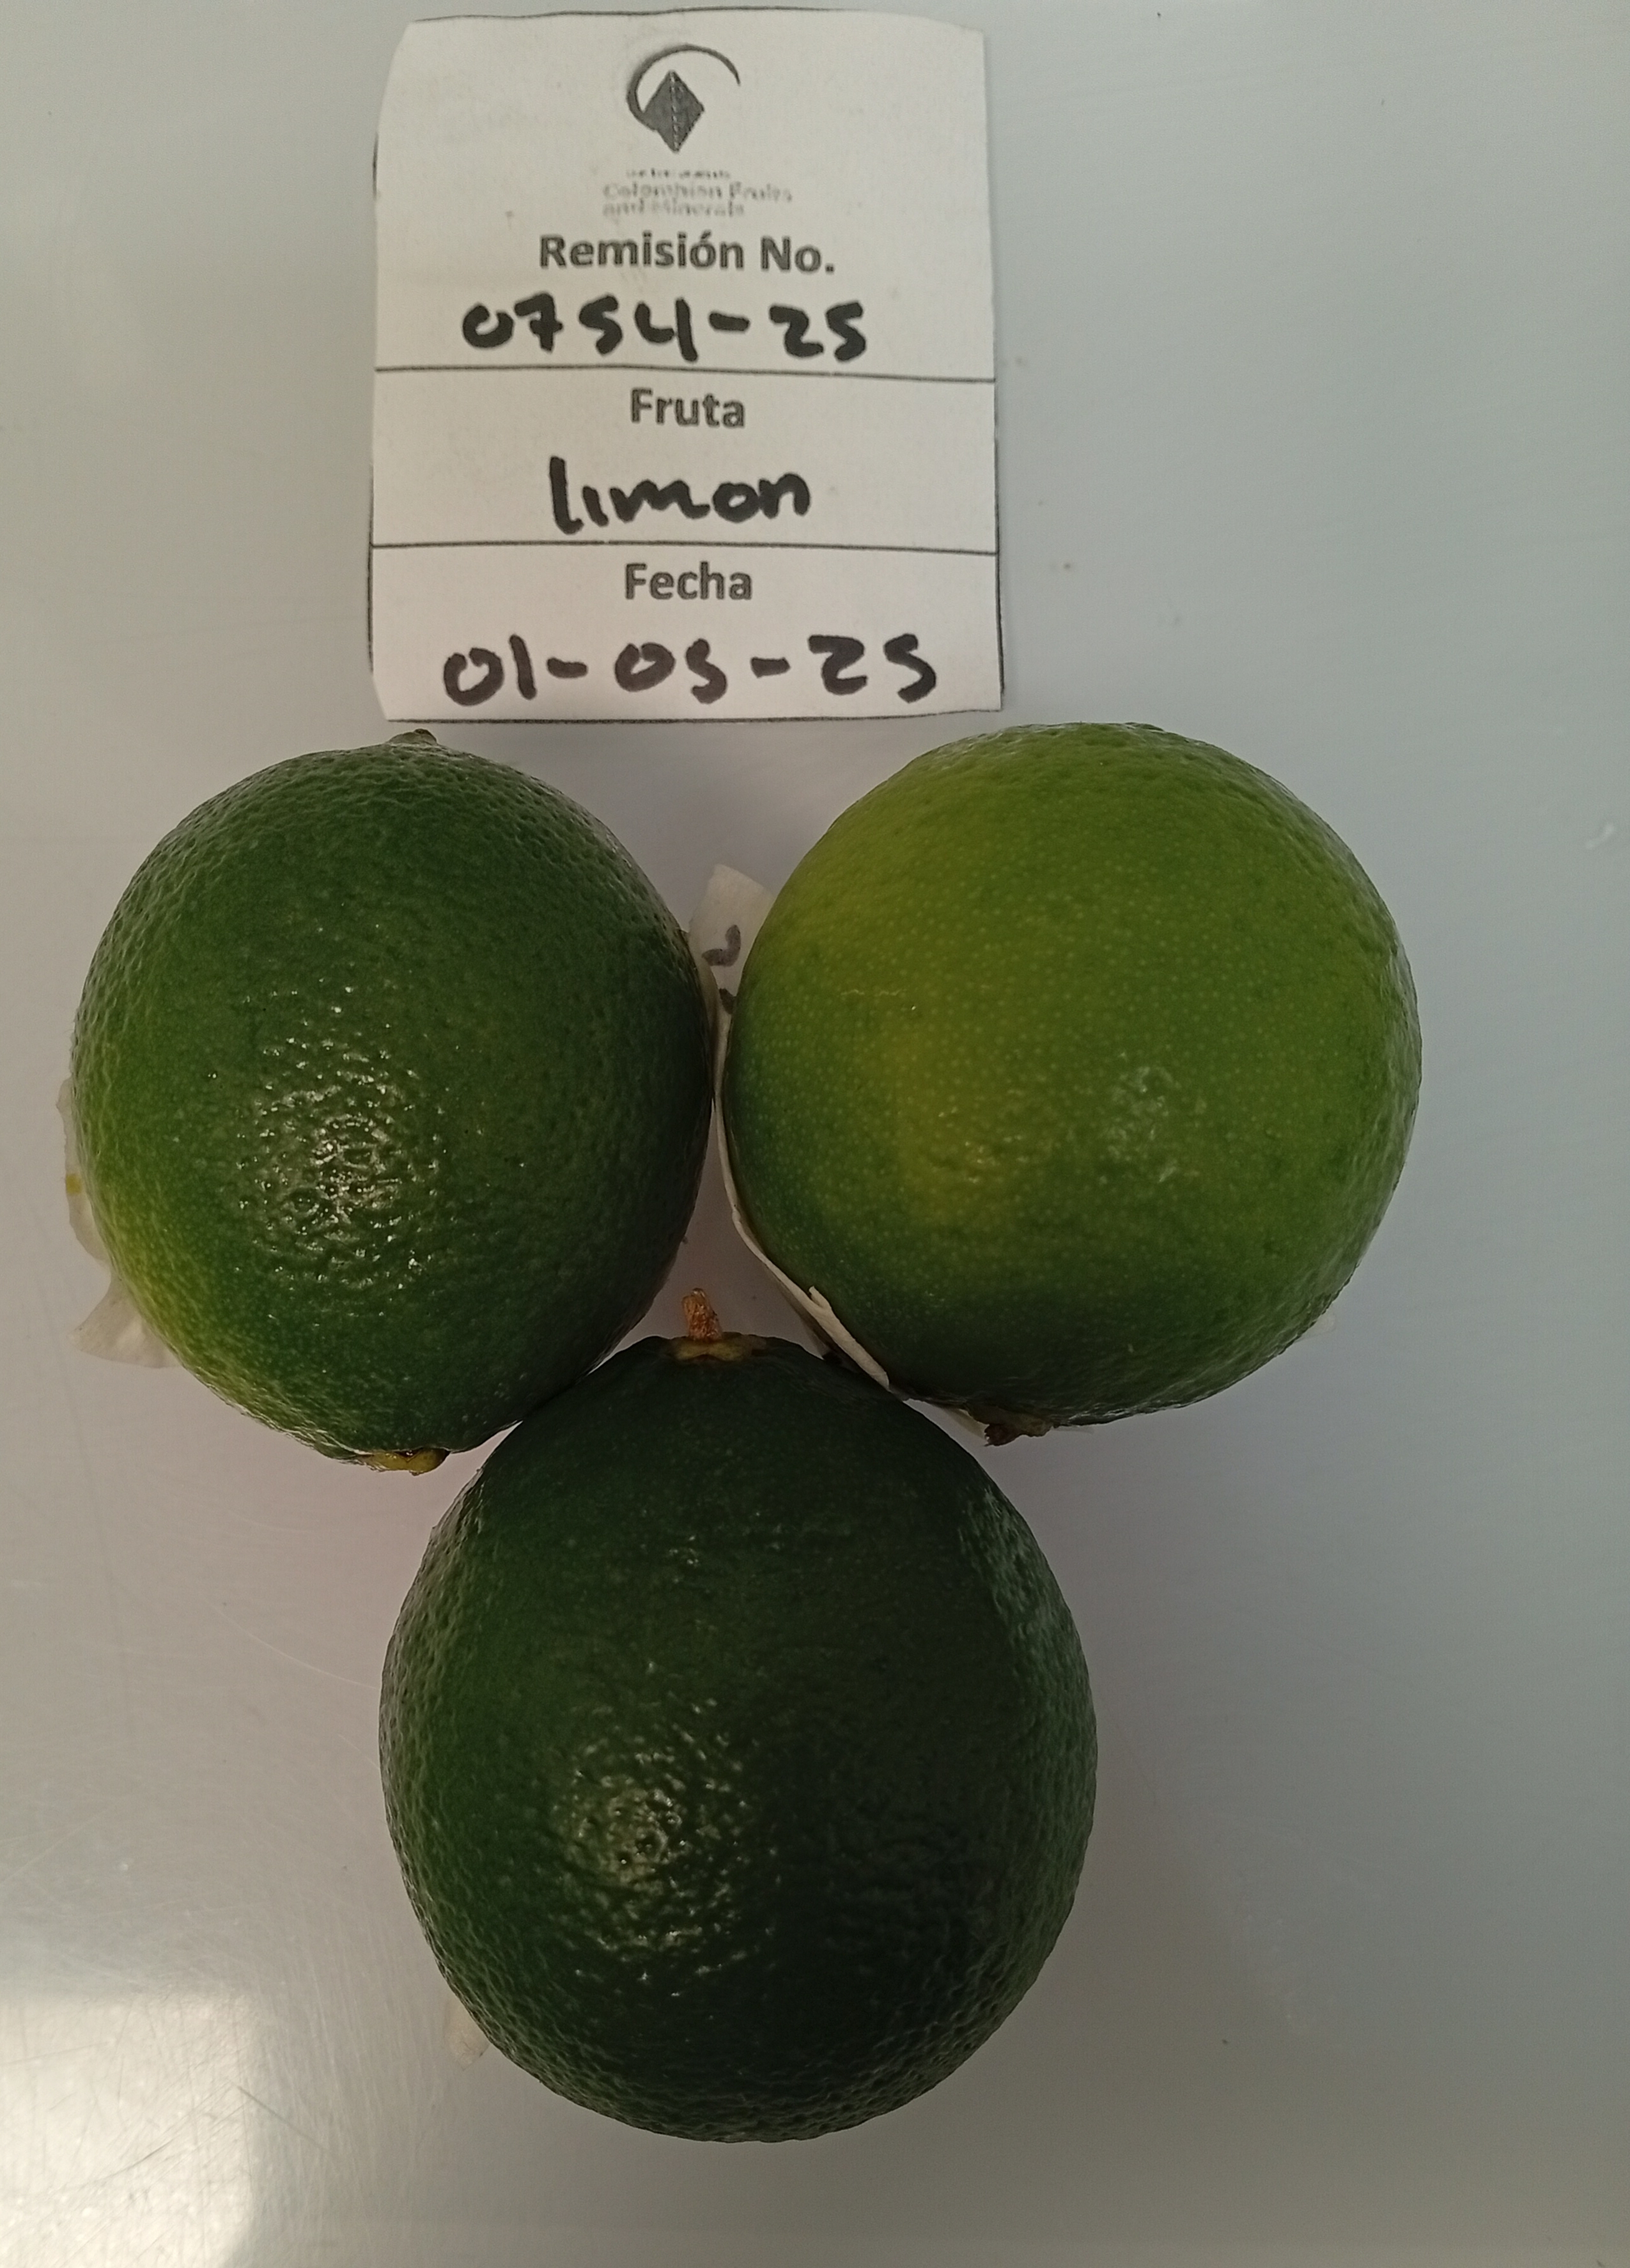 Colombian Fruits
and Minerals
Remisión No.
0754-25
Fruta
limon
Fecha
01-05-25